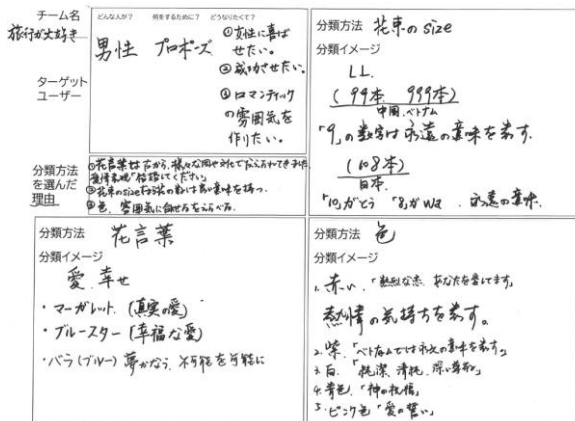 チーム名
旅行が大好き
ターゲット
ユーザー
どんな人が? 何をするために? どうなりたくて?
男性 プロポーズ
①女性に喜ば
せたい。
②成功させたい。
③ロマンティック
の雰囲気を
作りたい。
分類方法
を選んだ
理由
①花言葉は
②花束のsize
意味を持つ。
③色、雰囲気に
分類方法 花束のsize
分類イメージ
LL.
(99本 999本)
中国.ベトナム
「9」の数字は永遠の意味を表す.
(108本)
日本.
永遠の意味.
分類方法 花言葉
分類イメージ
愛. 幸せ
・マーガレット.(真実の愛)
・ブルースター(幸福な愛)
・バラ(ブルー) 夢かなう. 不可能を可能に
分類方法 色
分類イメージ
1.赤い.「熱烈な恋. あなたを愛してます」
熱情の気持ちを表す。
2.紫.「ベトナムでは永久の意味を表す」
3.白.「純潔. 清純.
4.青色.「神の祝福」
5.ピンク色「愛の誓い」